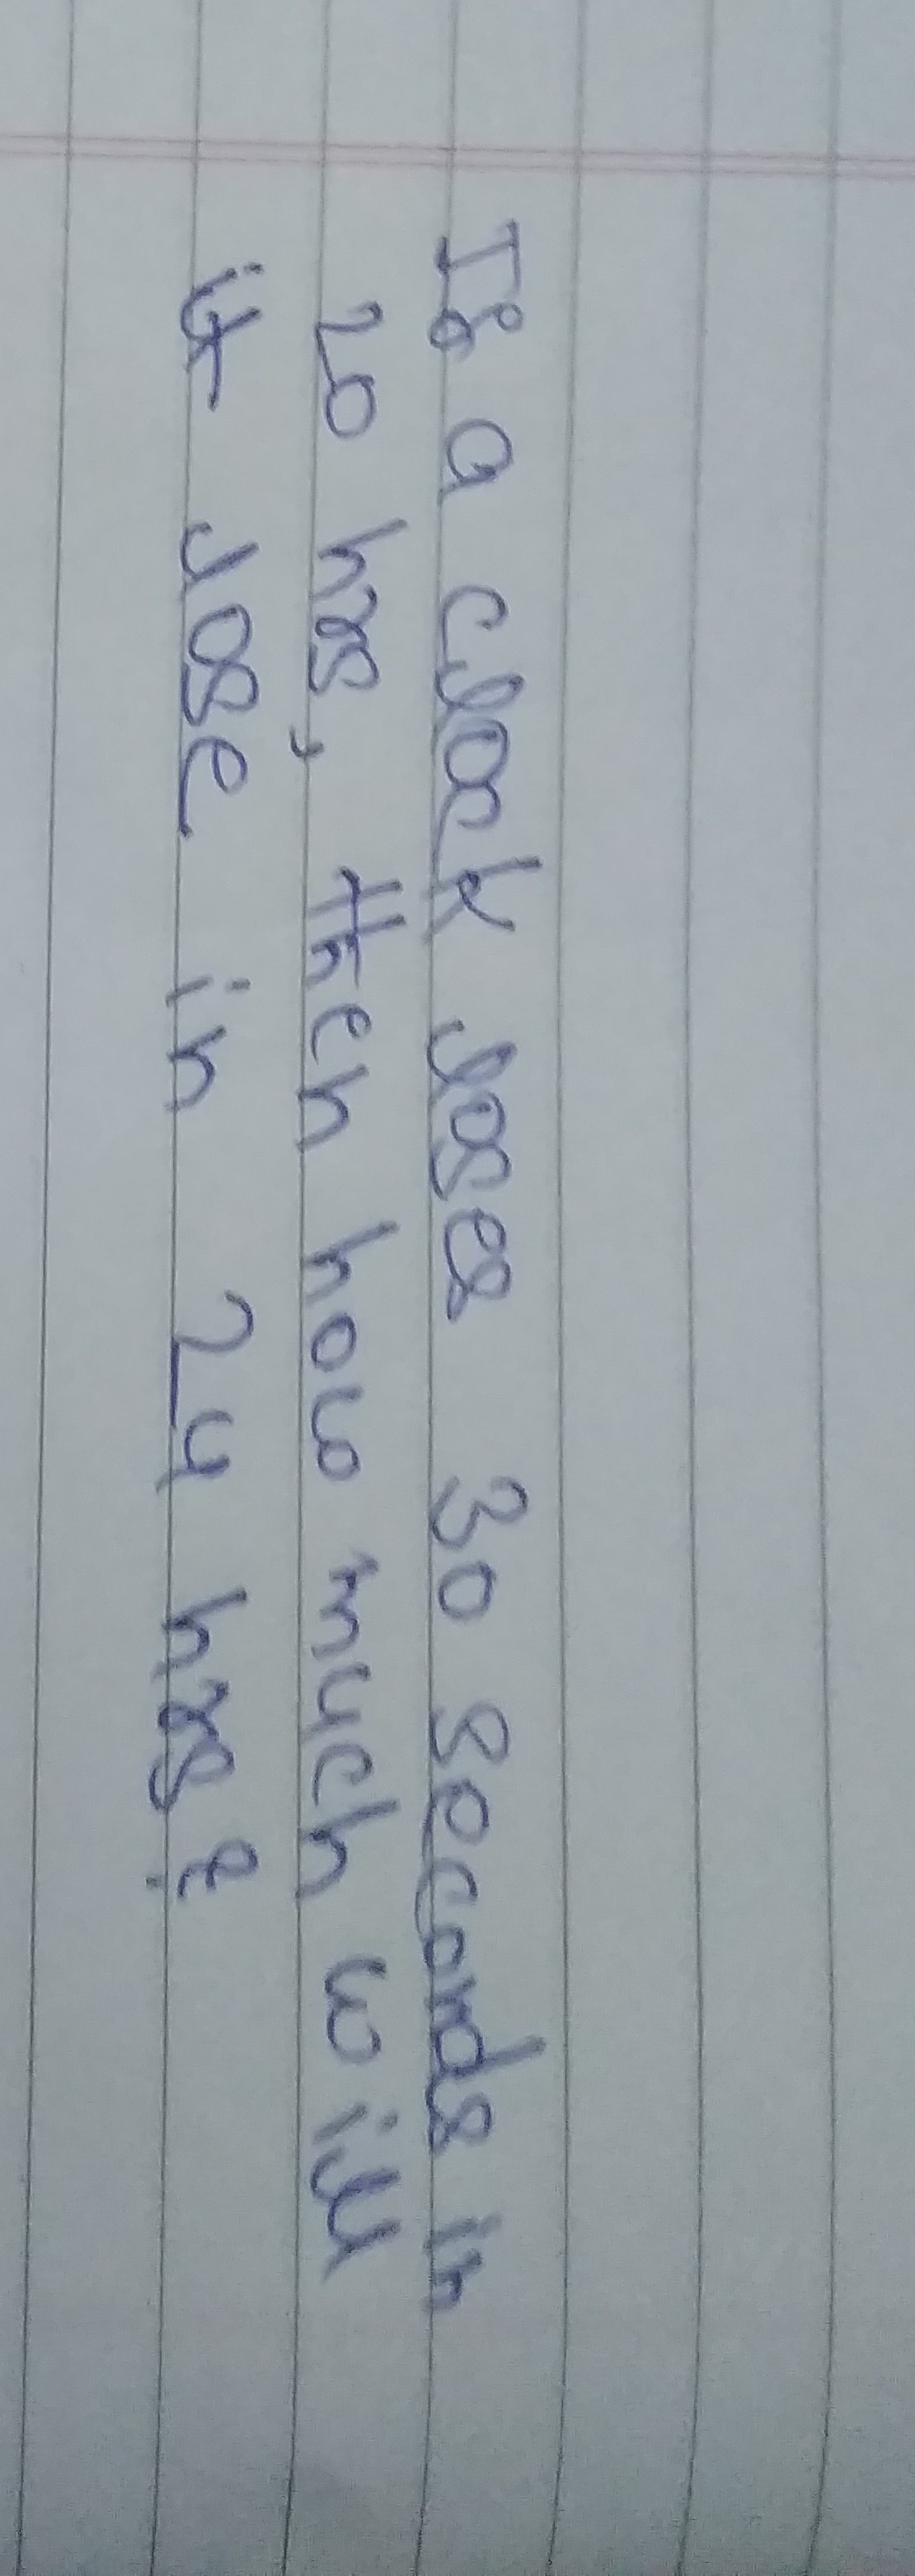 If a clock loses 30 seconds in
20 hrs, then how much will
it lose in 24 hrs?